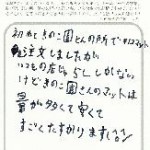 初めてきのこ園さんの所で
注文しましたが
いつもの店は5Lしかない
けどきのこ園さんのマットは
量が多くて安くて
すごくたすかります!!